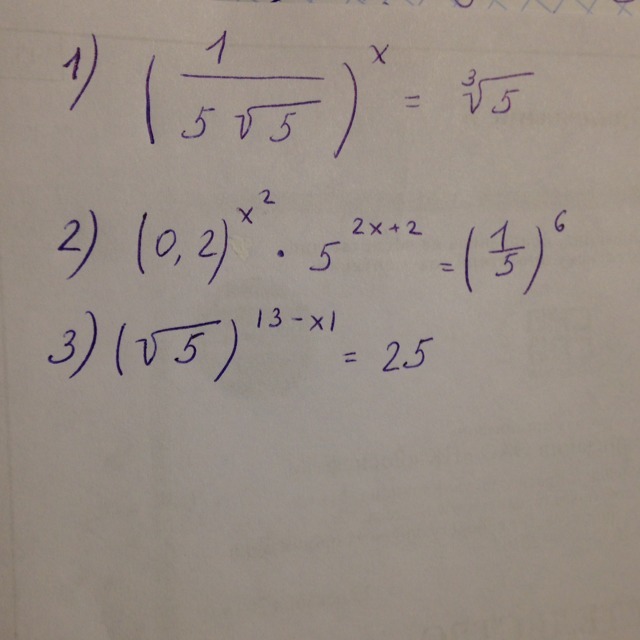 1) (1/(5√5))^x = ∛5
2) (0,2)^(x^2) · 5^(2x+2) = (1/5)^6
3) (√5)^|3-x| = 25